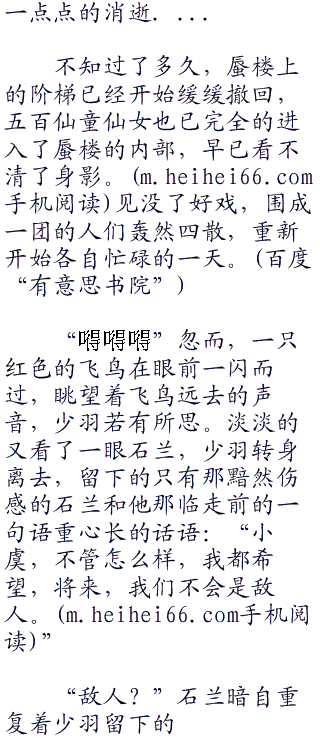 一点点的消逝．...
不知过了多久，蜃楼上
的阶梯已经开始缓缓撤回，
五百仙童仙女也已完全的进
入了蜃楼的内部，早已看不
清了身影。(m.heihei66.com
手机阅读)见没了好戏，围成
一团的人们轰然四散，重新
开始各自忙碌的一天。(百度
“有意思书院”)
“嘚嘚嘚”忽而，一只
红色的飞鸟在眼前一闪而
过，眺望着飞鸟远去的声
音，少羽若有所思。淡淡的
又看了一眼石兰，少羽转身
离去，留下的只有那黯然伤
感的石兰和他那临走前的一
句语重心长的话语：“小
虞，不管怎么样，我都希
望，将来，我们不会是敌
人。(m.heihei66.com手机阅
读)”
“敌人？”石兰暗自重
复着少羽留下的